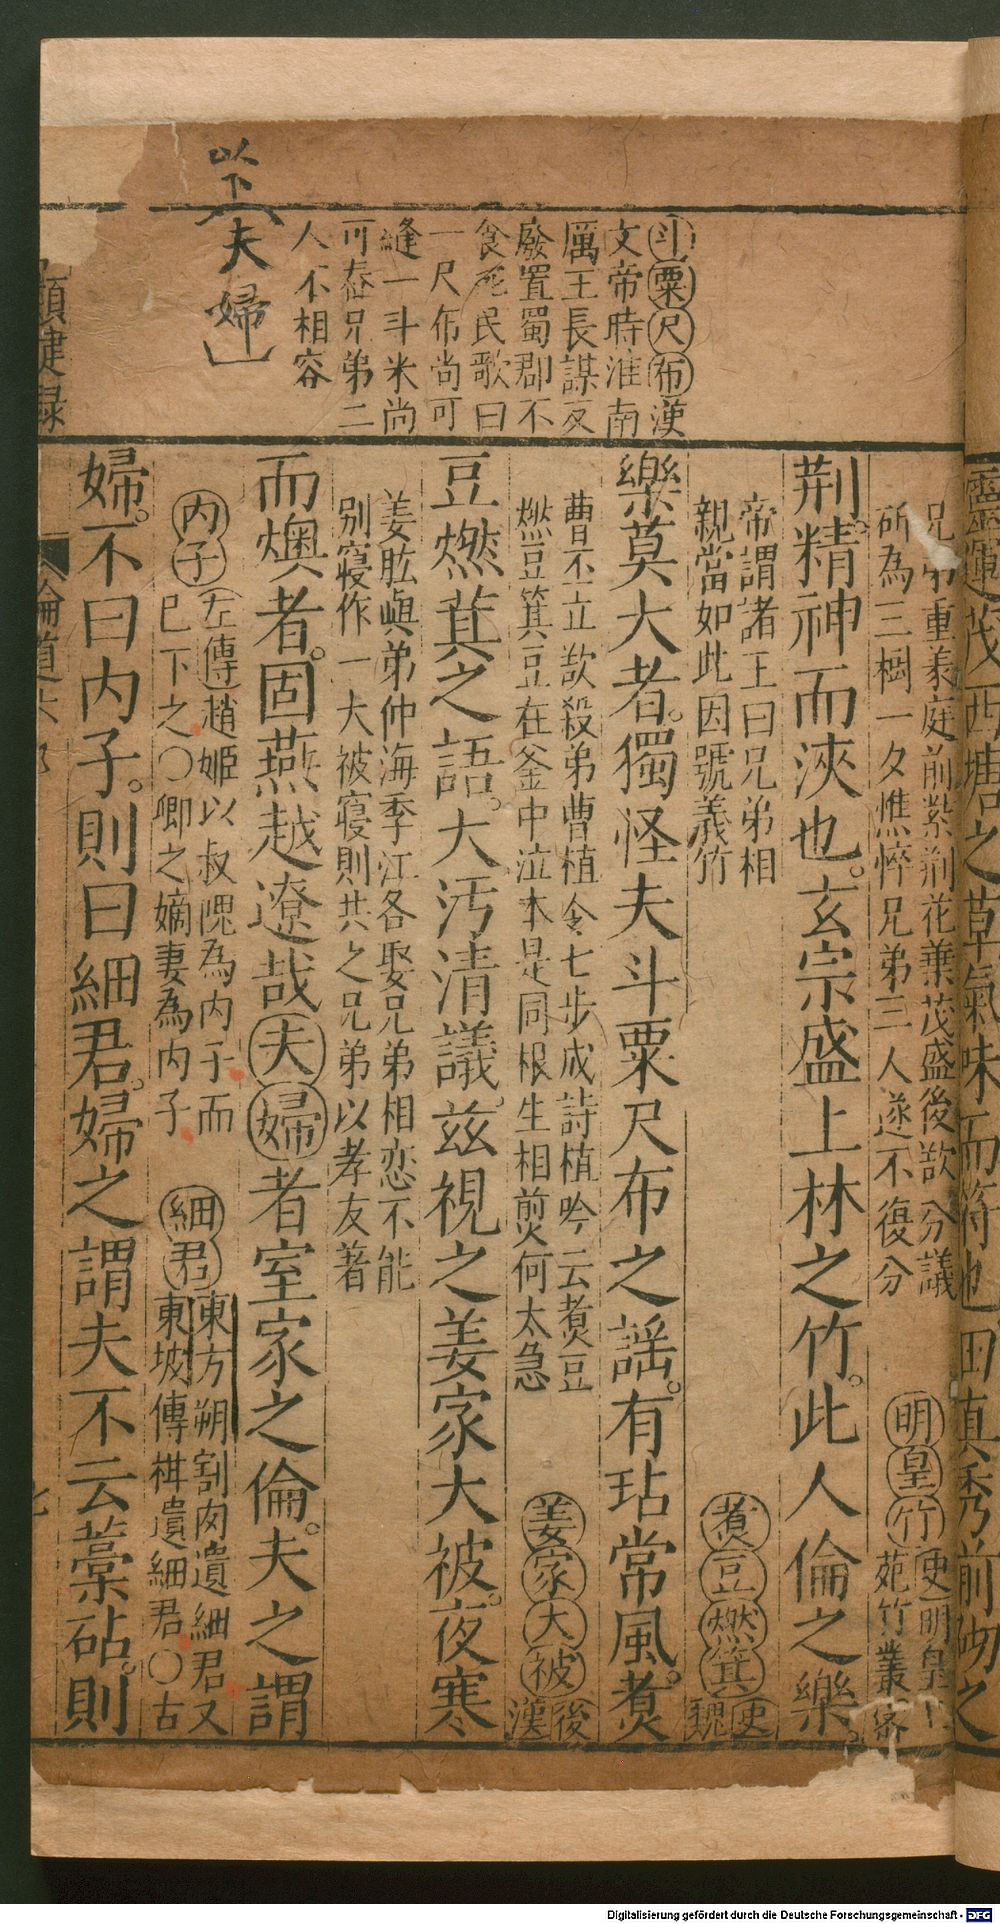 以下
夫婦
斗粟尺布漢
文帝時淮南
厲王長謀反
廢置蜀郡不
食死民歌曰
一尺布尚可
縫一斗米尚
可舂兄弟二
人不相容
靈運茂西塘之草氣味而符也田真秀前砌之
兄弟重義庭前紫荊花葉茂盛後欲分議
斫為三樹一夕憔悴兄弟三人遂不復分
明皇竹
史明皇
苑竹叢密
荆精神而浹也玄宗盛上林之竹此人倫之樂
帝謂諸王曰兄弟相
親當如此因號義竹
煮豆燃萁
史
魏
樂莫大者獨怪夫斗粟尺布之謡有玷常風煮
曹丕立欲殺弟曹植令七步成詩植吟云煮豆
燃豆箕豆在釜中泣本是同根生相煎何太急
姜家大被
後
漢
豆燃萁之語大汚清議兹視之姜家大被夜寒
姜肱與弟仲海季江各娶兄弟相恋不能
别寢作一大被寢則共之兄弟以孝友著
而燠者固燕越遼哉夫婦者室家之倫夫之謂
内子
左傳趙姬以叔隗為内子而
已下之〇卿之嫡妻為内子
細君
東方朔割肉遺細君又
東坡傳柑遺細君〇古
婦不曰内子則曰細君婦之謂夫不云藁砧則
類律録
倫道
七
Digitalisierung gefördert durch die Deutsche Forschungsgemeinschaft - DFG